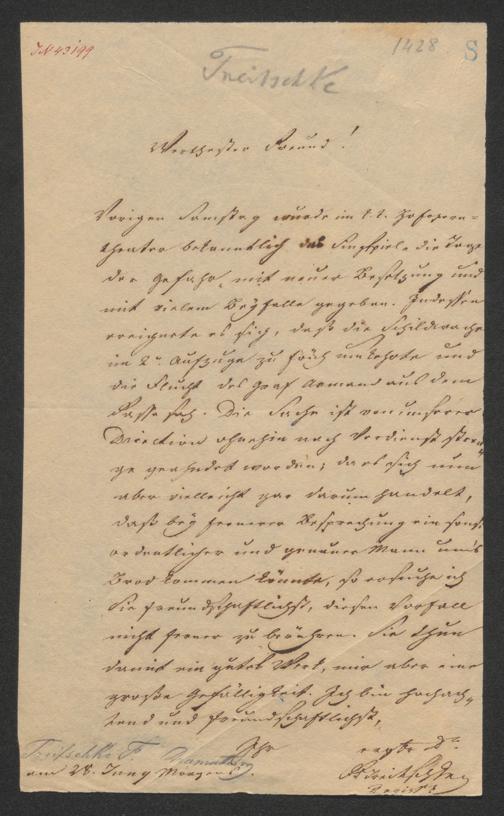 I.N. 43199
1428
S
Treitschke
Werthester Freund!
Vorigen Samstag wurde im k.k. Hofopern=
theater bekanntlich das Singspiel: die Tage
der Gefahr, mit neuer Besetzung und
mit vielem Beyfalle gegeben. Indessen
ereignete es sich, daß die Schildwache
im 2n Aufzuge zu früh umkehrte und
die Flucht des Graf Armand aus dem
Fasse sah. Die Sache ist von unserer
Direction ohnehin nach Verdienst stren=
ge geahndet worden; da es sich nun
aber vielleicht gar darum handelt,
daß bey fernerer Besprechung ein sonst
ordentlicher und genauer Mann um's
Brod kommen könnte, so ersuche ich
Sie freundschaftlichst, diesen Vorfall
nicht ferner zu berühren. Sie thun
damit ein gutes Werk, mir aber eine
große Gefälligkeit. Ich bin hochach=
tend und freundschaftlichst,
Ihr
Treitschke F.
am 28. Juny Morgens.
FTreitschke